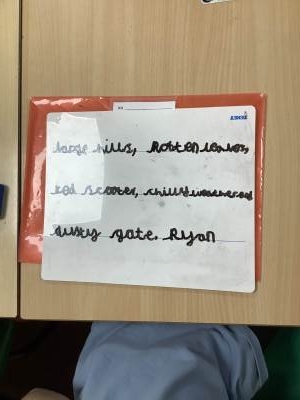 large hills, Rotten lemons,
red scooter, chilly weather and
rusty gate. Ryan